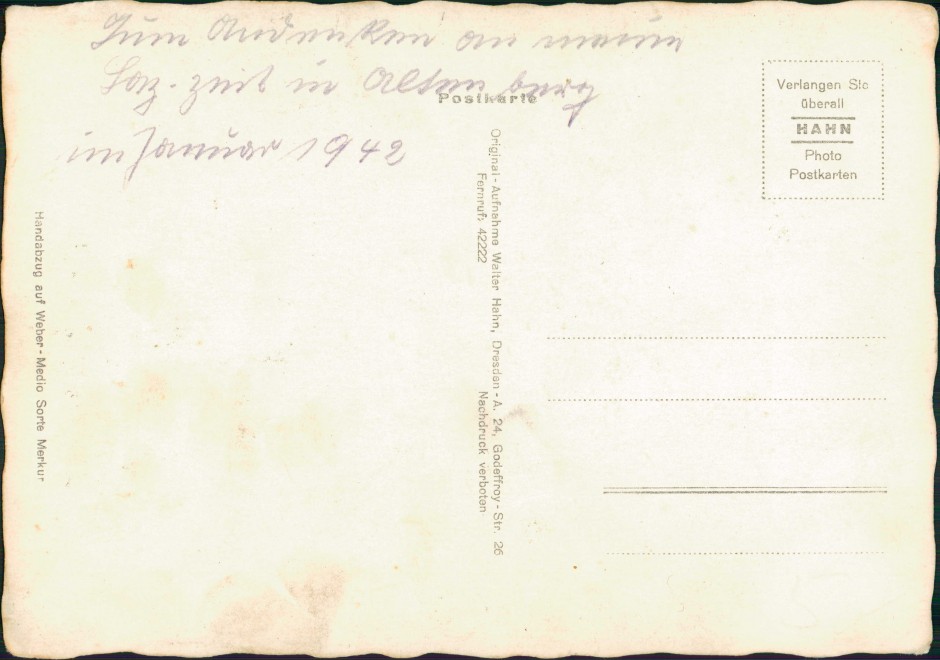 Zum Andenken an meine
Laz. zeit in Altenberg
im Januar 1942
Postkarte
Verlangen Sie
überall
HAHN
Photo
Postkarten
Original-Aufnahme Walter Hahn, Dresden-A. 24, Godeffroy-Str. 26
Fernruf: 42222 Nachdruck verboten
Handabzug auf Weber-Medio Sorte Merkur